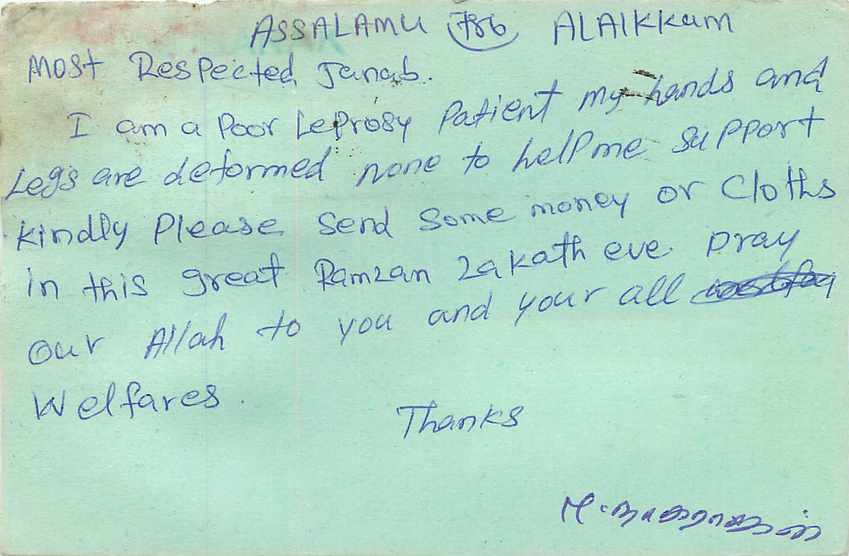 ASSALAMU 786 ALAIKKAM
Most Respected Janab.
I am a Poor Leprosy Patient my hands and
Legs are deformed none to help me support
kindly Please Send Some money or Cloths
in this great Ramzan Zakath eve pray
our Allah to you and your all
Welfares.
Thanks
M.